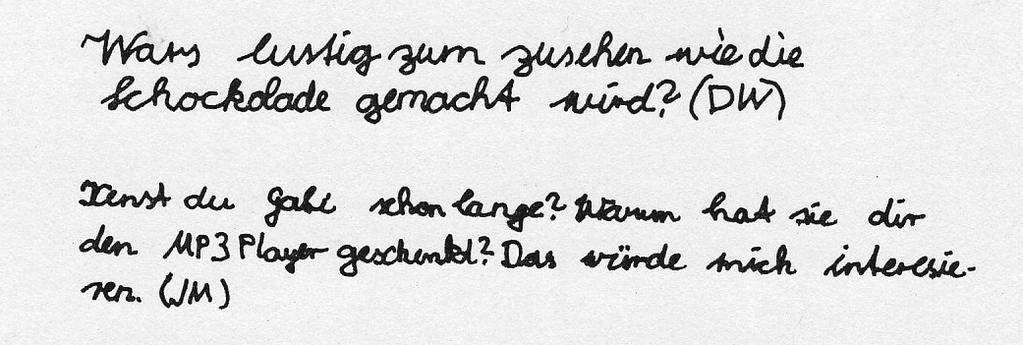 Wars lustig zum zusehen wie die
Schockolade gemacht wird? (DW)
Kenst du Gabi schon lange? Warum hat sie dir
den MP3 Player geschenkt? Das würde mich interesie-
ren. (JM)